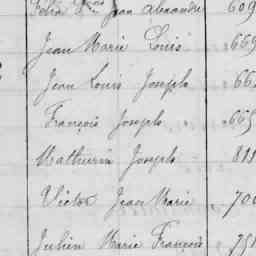 Jean Alexandre 609
Jean Marie Louis 669
Jean Louis Joseph 66
François Joseph 665
Mathurin Joseph 811
Victor Jean Marie 70
Julien Marie François 751